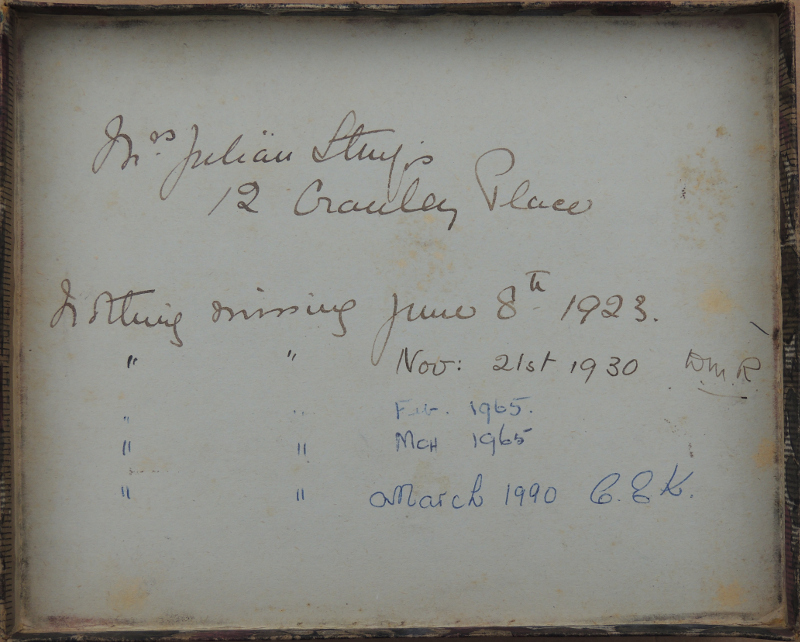 Mrs Julian Sturgis
12 Cranley Place
Nothing missing June 8th 1923.
" " Nov: 21st 1930 D.M.R.
" " Feb. 1965.
" " Mch 1965
" " March 1990 C.E.K.